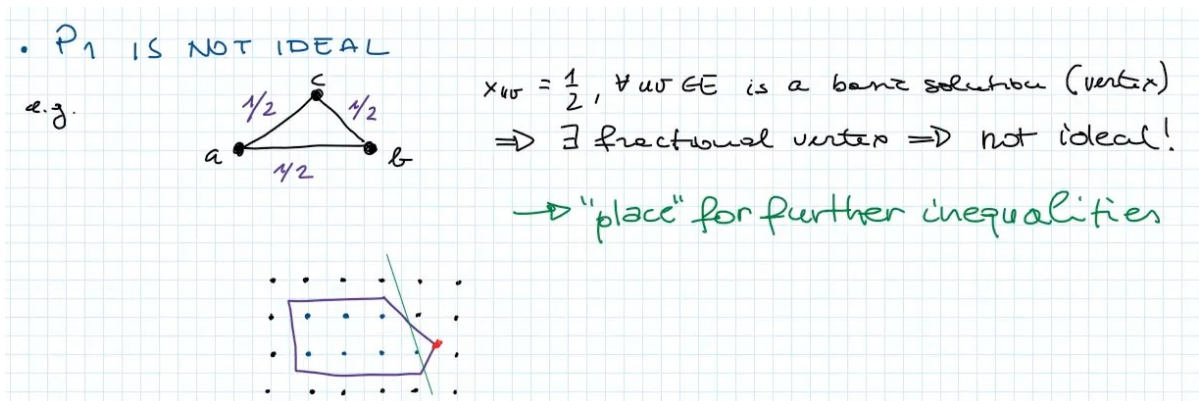 • P1 IS NOT IDEAL
e.g.
c
1/2 1/2
a b
1/2
xuv = 1/2, ∀ uv ∈ E is a basic solution (vertex)
⇒ ∃ fractional vertex ⇒ not ideal!
→ "place" for further inequalities